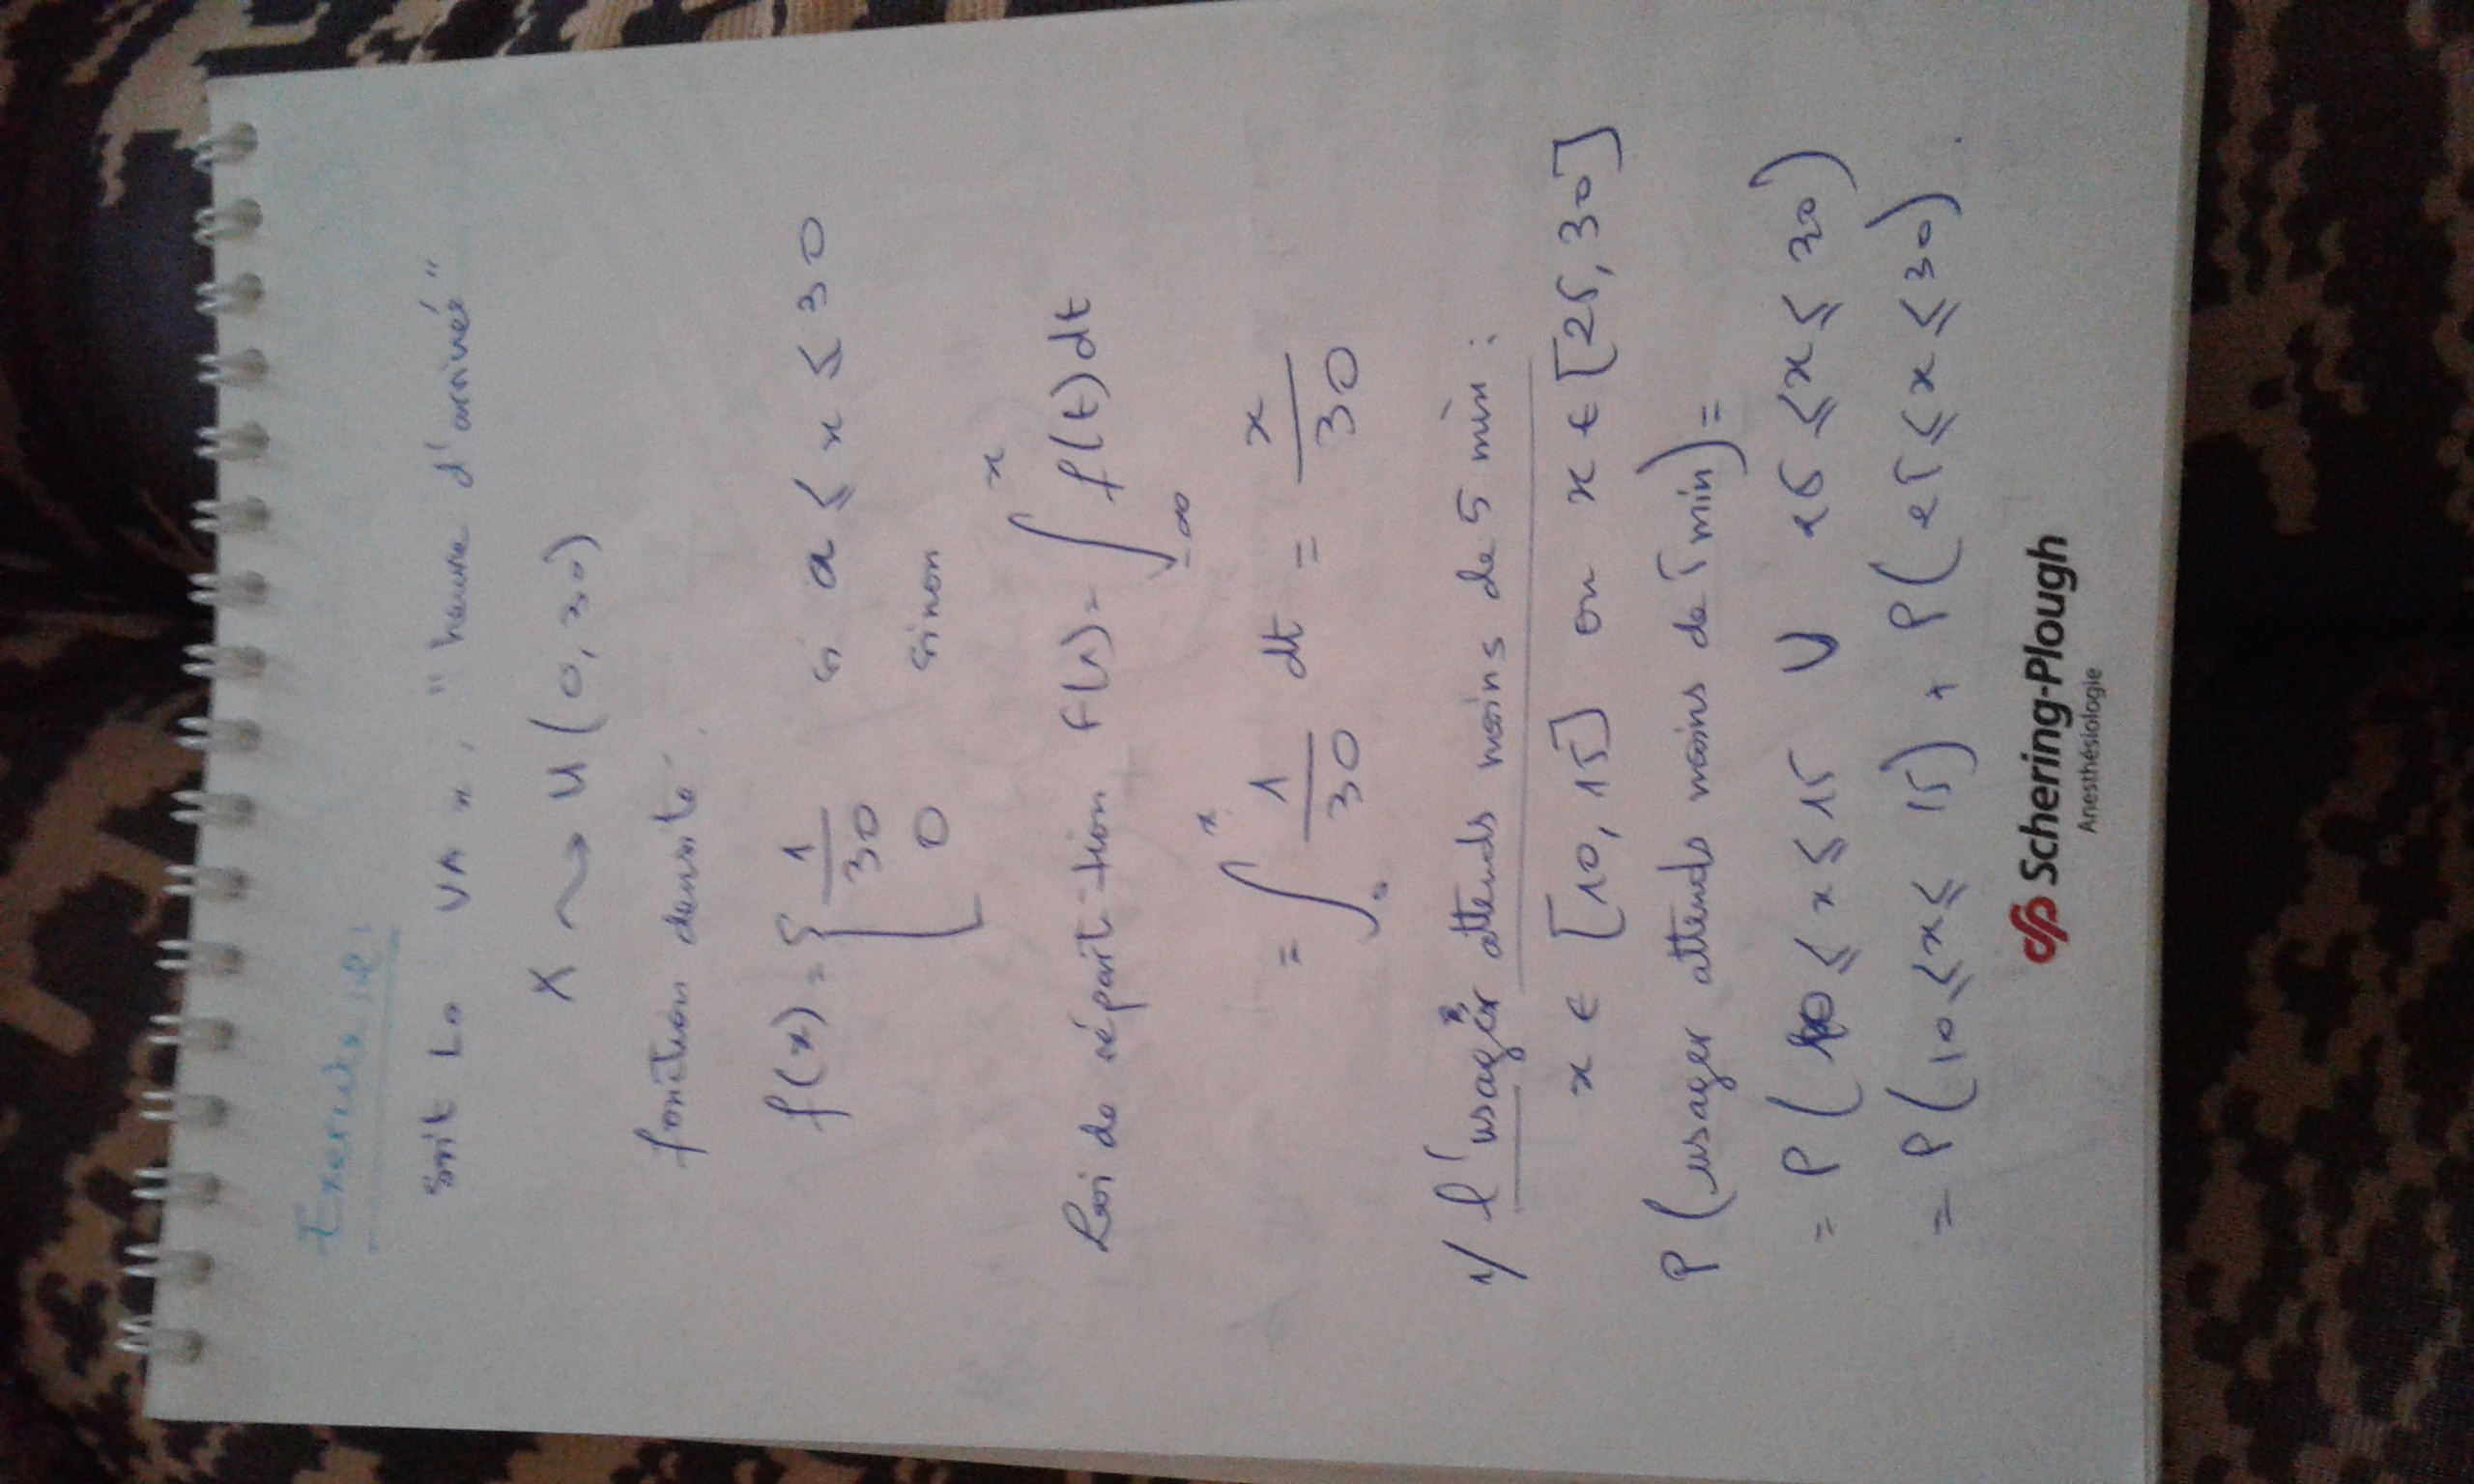 Exercice 2:
soit La VA x, "heure d'arrivée"
X ⇝ U(0,30)
fonction densité
f(x) = { 1/30 si a ≤ x ≤ 30
0 sinon
Loi de répartition F(x) = ∫_{-∞}^{x} f(t) dt
= ∫_{0}^{x} 1/30 dt = x/30
1/ l'usager attends moins de 5 min :
x ∈ [10, 15] ou x ∈ [25, 30]
P (usager attends moins de 5 min) =
= P ( 10 ≤ x ≤ 15 U 25 ≤ x ≤ 30 )
= P (10 ≤ x ≤ 15) + P ( 25 ≤ x ≤ 30) .
Schering-Plough
Anesthésiologie